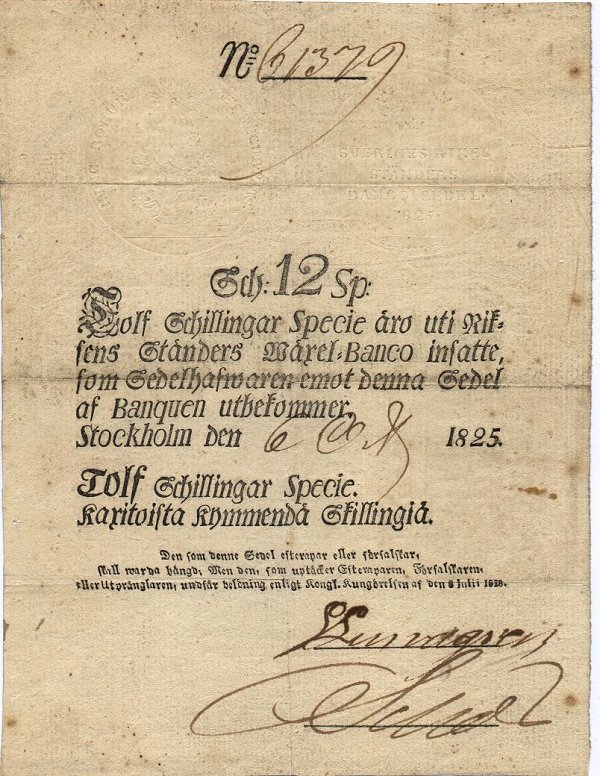 No 61379
SVERIGES RIKES
STÄNDERS
BANCO SEDEL.
1825.
Sch: 12 Sp:
Tolf Schillingar Specie äro uti Rik-
sens Ständers Wäxel-Banco insatte,
som Sedelhafwaren emot denna Sedel
af Banquen utbekommer.
Stockholm den 6 Oct 1825.
Tolf Schillingar Specie.
Kaxitoista Kymmendä Skillingiä.
Den som denne Sedel efterapar eller förfalskar,
skall warda hängd; Men den, som uptäcker Efteraparen, Förfalskaren,
eller Utprånglaren, undfår belöning enligt Kongl. Kungörelsen af den 8 Julii